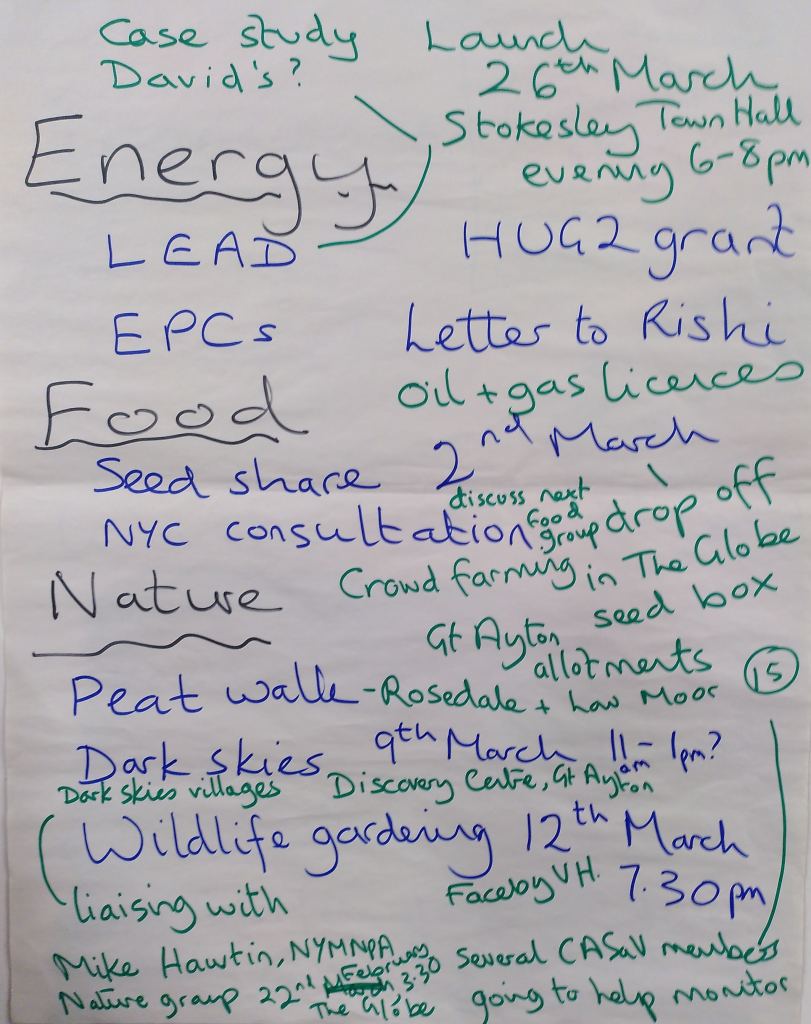 Case study Launch
David's? 26th March
Stokesley Town Hall
evening 6-8pm
Energy
LEAD HUG2 grant
EPCs Letter to Rishi
oil + gas licences
Food
Seed share 2nd March
drop off
in The Globe
seed box
NYC consultation discuss next
food
group
Crowd farming
Nature
Gt Ayton
allotments
Peat walk - Rosedale + Low Moor 15
Dark skies 9th March 11am - 1pm?
Dark skies villages Discovery Centre, Gt Ayton
Wildlife gardening 12th March
Faceby VH. 7.30pm
liaising with
Mike Hawtin, NYMNPA
Nature group 22nd February 3:30
The Globe
Several CASaV members
going to help monitor